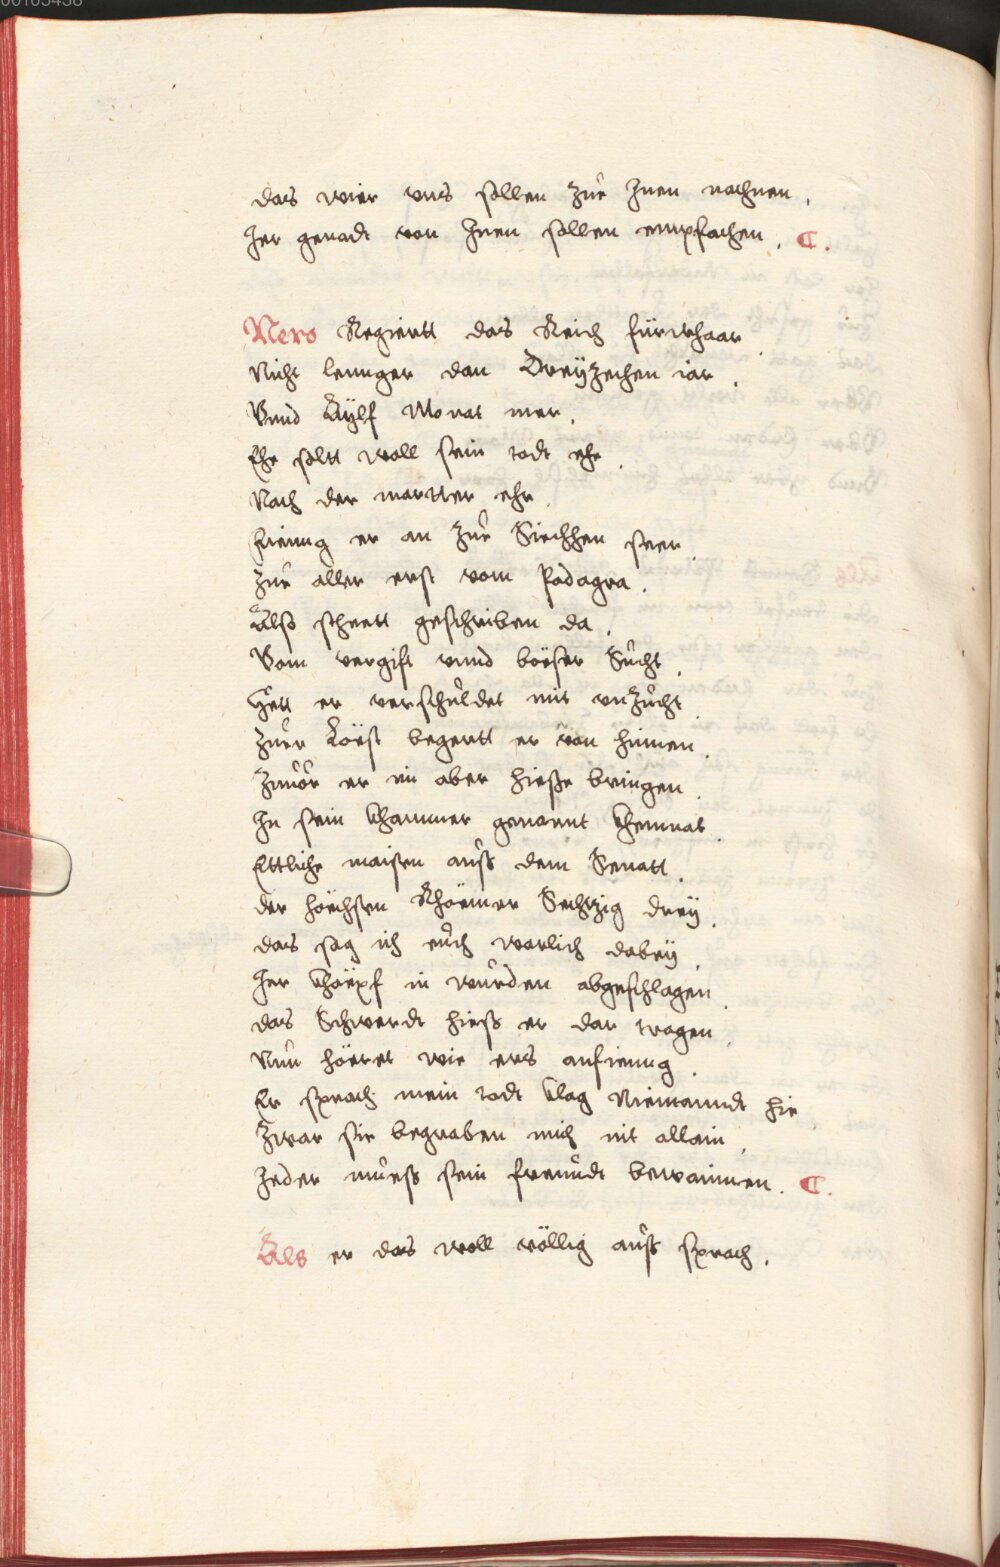 das wier vns sollen zue Inen nachnen.
Jer genadt von Inen sollen empfachen.
Nero Regiertt das Reich fürwhaar.
Nicht lennger dan Dreÿzechen iar.
Vnnd Aÿlf Monat mer.
Ehe soltt woll sein todt ehr.
Nach der martter ehr.
Fienng er an zue Siechhen seer.
Zue aller erst vom Padagra.
Also stheett geschriben da.
Vom vergift vnnd böeser Sucht.
Hett er verschuldet mit vnzucht.
Zuer Löest begertt er von hinnen.
Zuuor er im aber hieße bringen.
In sein Chammer genannt Chemnat.
Ettliche maisten auß dem Senatt.
der höechsten Rhöemer Sechtzig dreÿ.
das sag ich euch warlich dabeÿ.
Jer Chöepf in wurden abgeschlagen.
das Schwerdt hieß er dar tragen.
Nun höeret wie ers anfienng.
Er sprach mein todt klag Niemanndt hie.
Zwar sie begraben mich nit allain.
Jeder mueß sein freundt bewainnen.
Als er das woll völlig auß sprach.